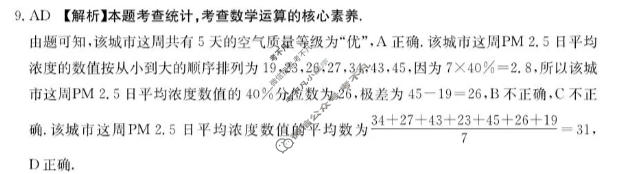 9. AD 【解析】本题考查统计,考查数学运算的核心素养.
由题可知,该城市这周共有 5 天的空气质量等级为“优”,A 正确. 该城市这周PM 2. 5 日平均
浓度的数值按从小到大的顺序排列为 19,23,26,27,34,43,45,因为 7×40%=2. 8,所以该城
市这周PM 2. 5 日平均浓度数值的 40%分位数为 26,极差为 45-19=26,B 不正确,C 不正
确. 该城市这周PM 2. 5 日平均浓度数值的平均数为 (34+27+43+23+45+26+19)/7 =31,
D 正确.